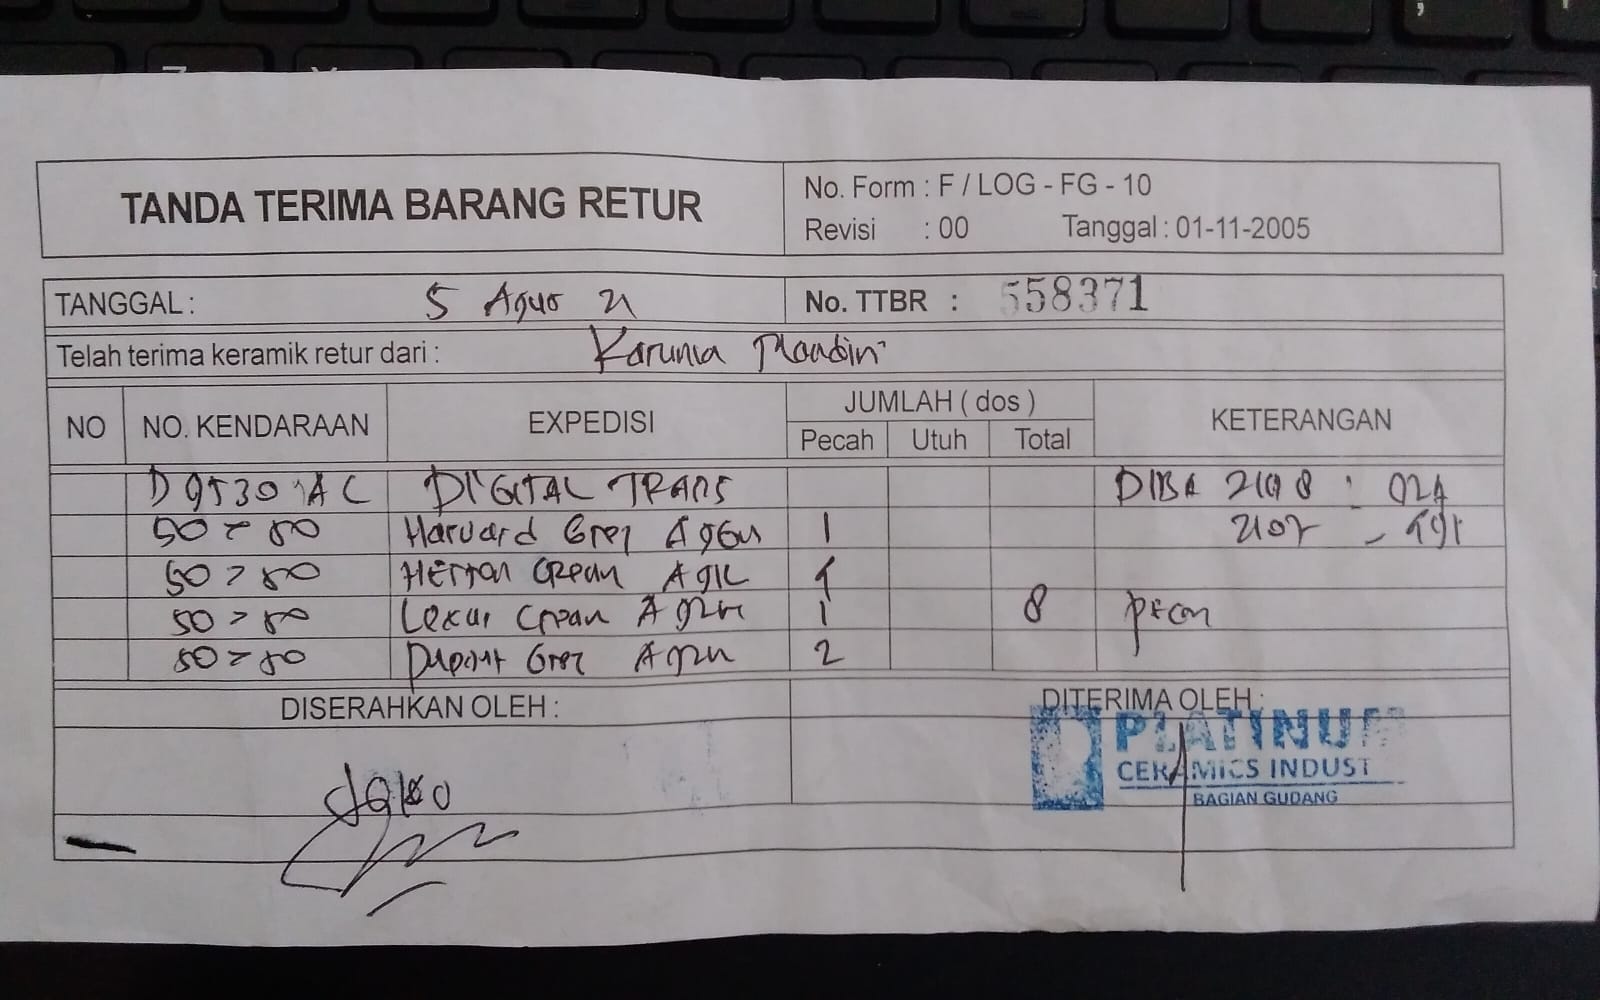 TANDA TERIMA BARANG RETUR
No. Form : F / LOG - FG - 10
Revisi : 00 Tanggal : 01-11-2005
TANGGAL : 5 Agus 21
No. TTBR : 558371
Telah terima keramik retur dari : Karunia Mandiri
NO NO. KENDARAAN EXPEDISI JUMLAH ( dos ) KETERANGAN
Pecah Utuh Total
D 9530 AC DIGITAL TRANS DIBA 2108
50 x 50 Harvard Grey 1 2107
50 x 50 Cream
50 x 50 Lexus Cream 1 8
50 x 50 Grey 2
DISERAHKAN OLEH : DITERIMA OLEH :
PLATINUM
CERAMICS INDUST
BAGIAN GUDANG
Joko